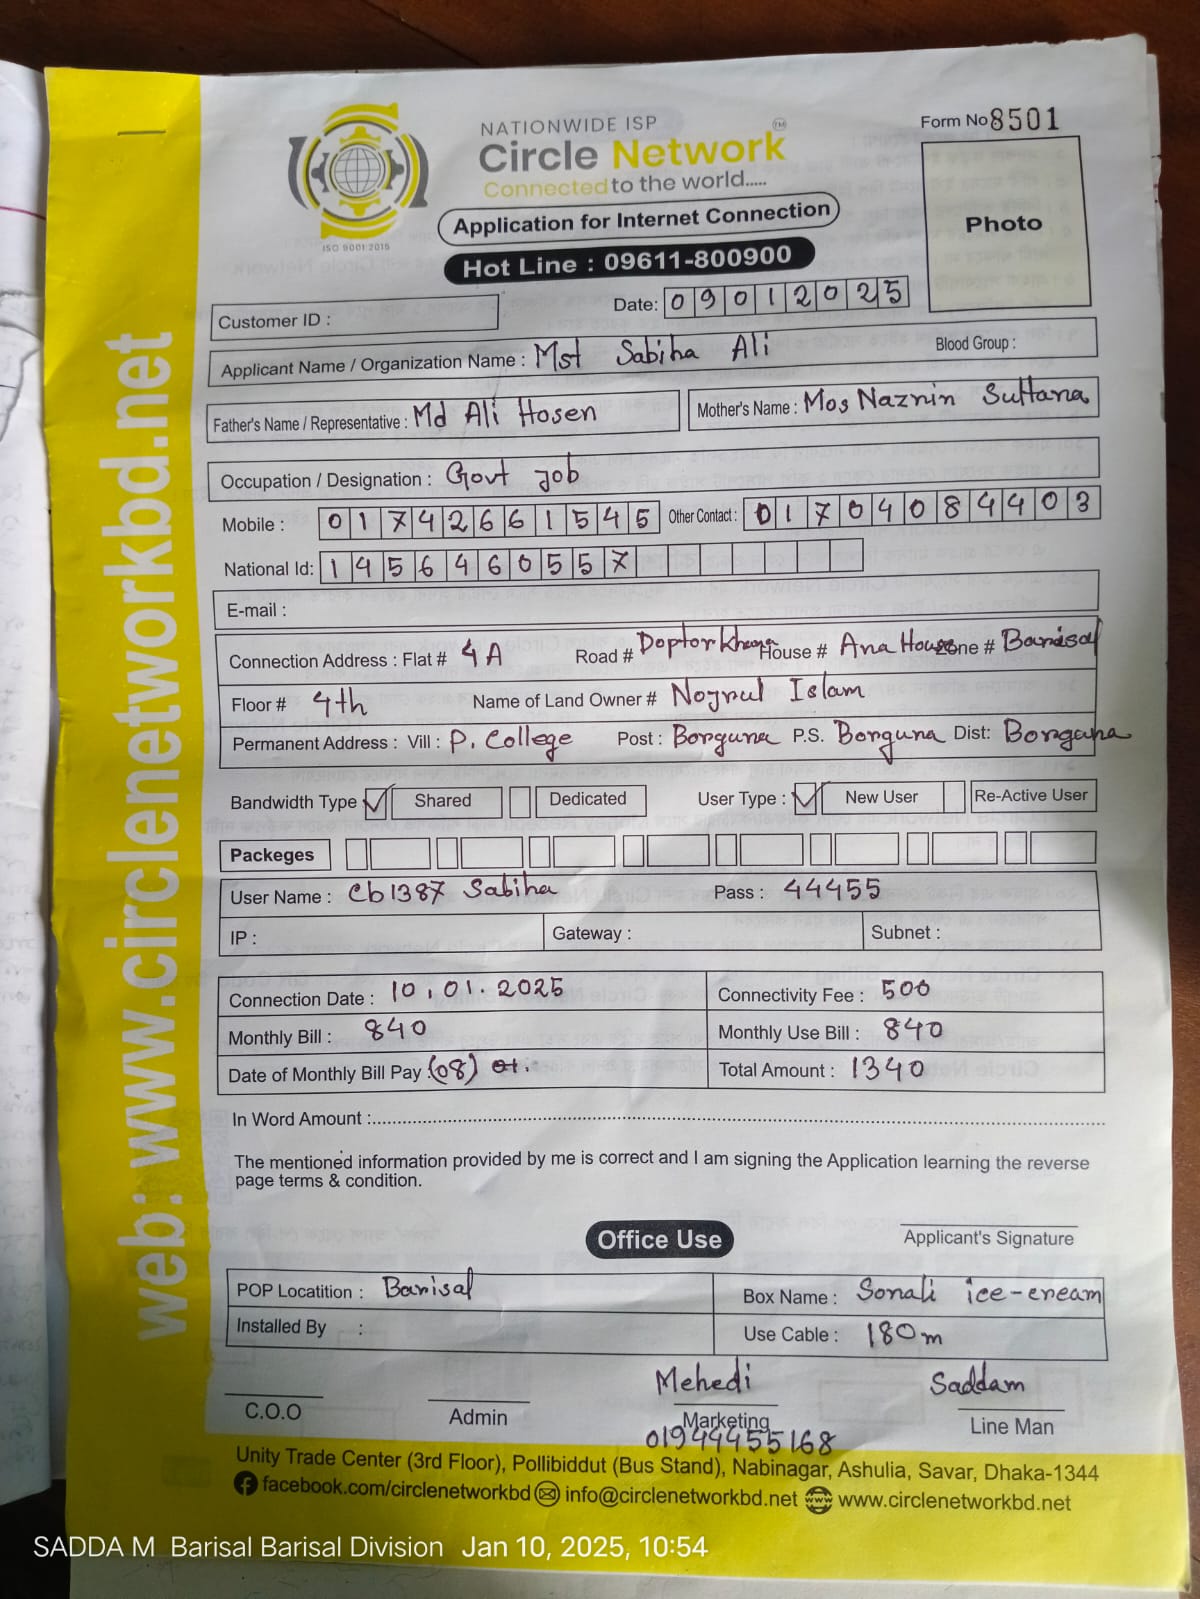 NATIONWIDE ISP
Circle Network TM
Connected to the world.....
ISO 9001:2015
Application for Internet Connection
Hot Line : 09611-800900
Form No 8501
Photo
Date: 09012025
Customer ID :
Applicant Name / Organization Name : Mst Sabiha Ali Blood Group :
Father's Name / Representative : Md Ali Hosen Mother's Name : Mos Naznin Sultana
Occupation / Designation : Govt job
Mobile : 01742661545 Other Contact : 01704084403
National Id: 1456460557
E-mail :
Connection Address : Flat # 4A Road # Doptor khana House # Ana House Zone # Barisal
Floor # 4th Name of Land Owner # Nojrul Islam
Permanent Address : Vill : P. College Post : Borguna P.S. Borguna Dist: Borguna
Bandwidth Type Shared Dedicated User Type : New User Re-Active User
Packeges
User Name : Cb1387 Sabiha Pass : 44455
IP : Gateway : Subnet :
Connection Date : 10.01.2025 Connectivity Fee : 500
Monthly Bill : 840 Monthly Use Bill : 840
Date of Monthly Bill Pay : (08) Total Amount : 1340
In Word Amount :
The mentioned information provided by me is correct and I am signing the Application learning the reverse
page terms & condition.
Office Use
Applicant's Signature
POP Locatition : Barisal Box Name : Sonali ice-cream
Installed By : Use Cable : 180m
Mehedi Saddam
C.O.O Admin Marketing Line Man
01944455168
Unity Trade Center (3rd Floor), Pollibiddut (Bus Stand), Nabinagar, Ashulia, Savar, Dhaka-1344
facebook.com/circlenetworkbd info@circlenetworkbd.net www www.circlenetworkbd.net
web: www.circlenetworkbd.net
SADDA M Barisal Barisal Division Jan 10, 2025, 10:54